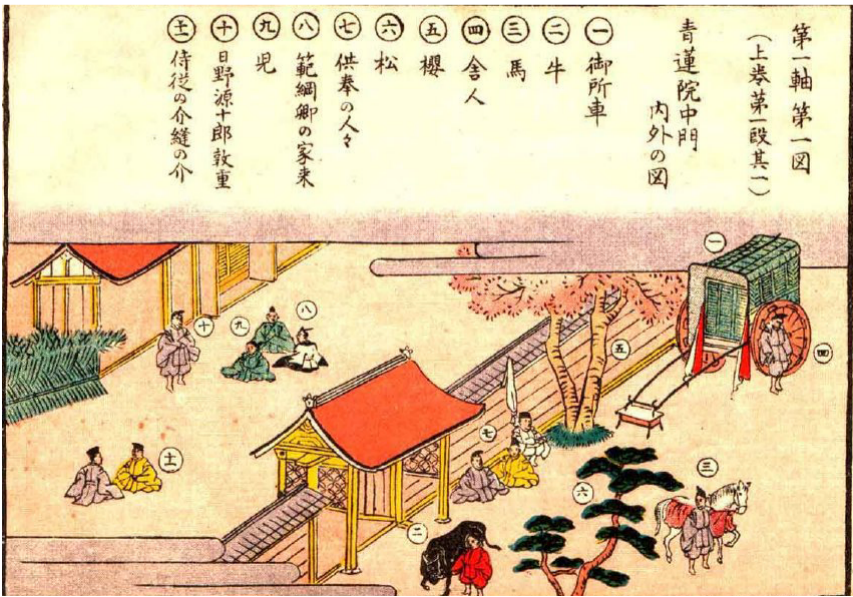 第一軸第一図
(上巻第一段其一)
青蓮院中門
内外の図
㊀御所車
㊁牛
㊂馬
㊃舎人
㊄櫻
㊅松
㊆供奉の人々
㊇範綱卿の家来
㊈児
㊉日野源十郎敦重
(十一)侍従の介縫の介
㊀
㊉
㊈
㊇
㊄
㊃
㊆
(十一)
㊂
㊅
㊁